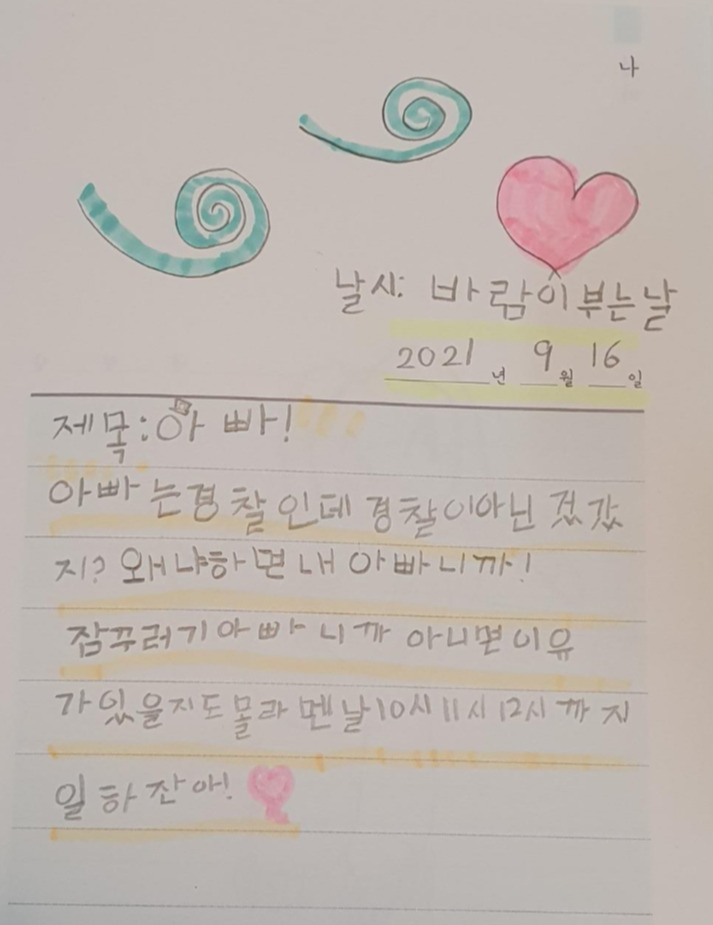 나
날시: 바람이 부는 날
2021년 9월 16일
제목: 아빠!
아빠는 경찰인데 경찰이아닌 겄갔
지? 왜냐하면 내 아빠니까!
잠꾸러기 아빠니까 아니면 이유
가 있을지도 몰라 멘날 10시 11시 12시 까지
일하잔아!